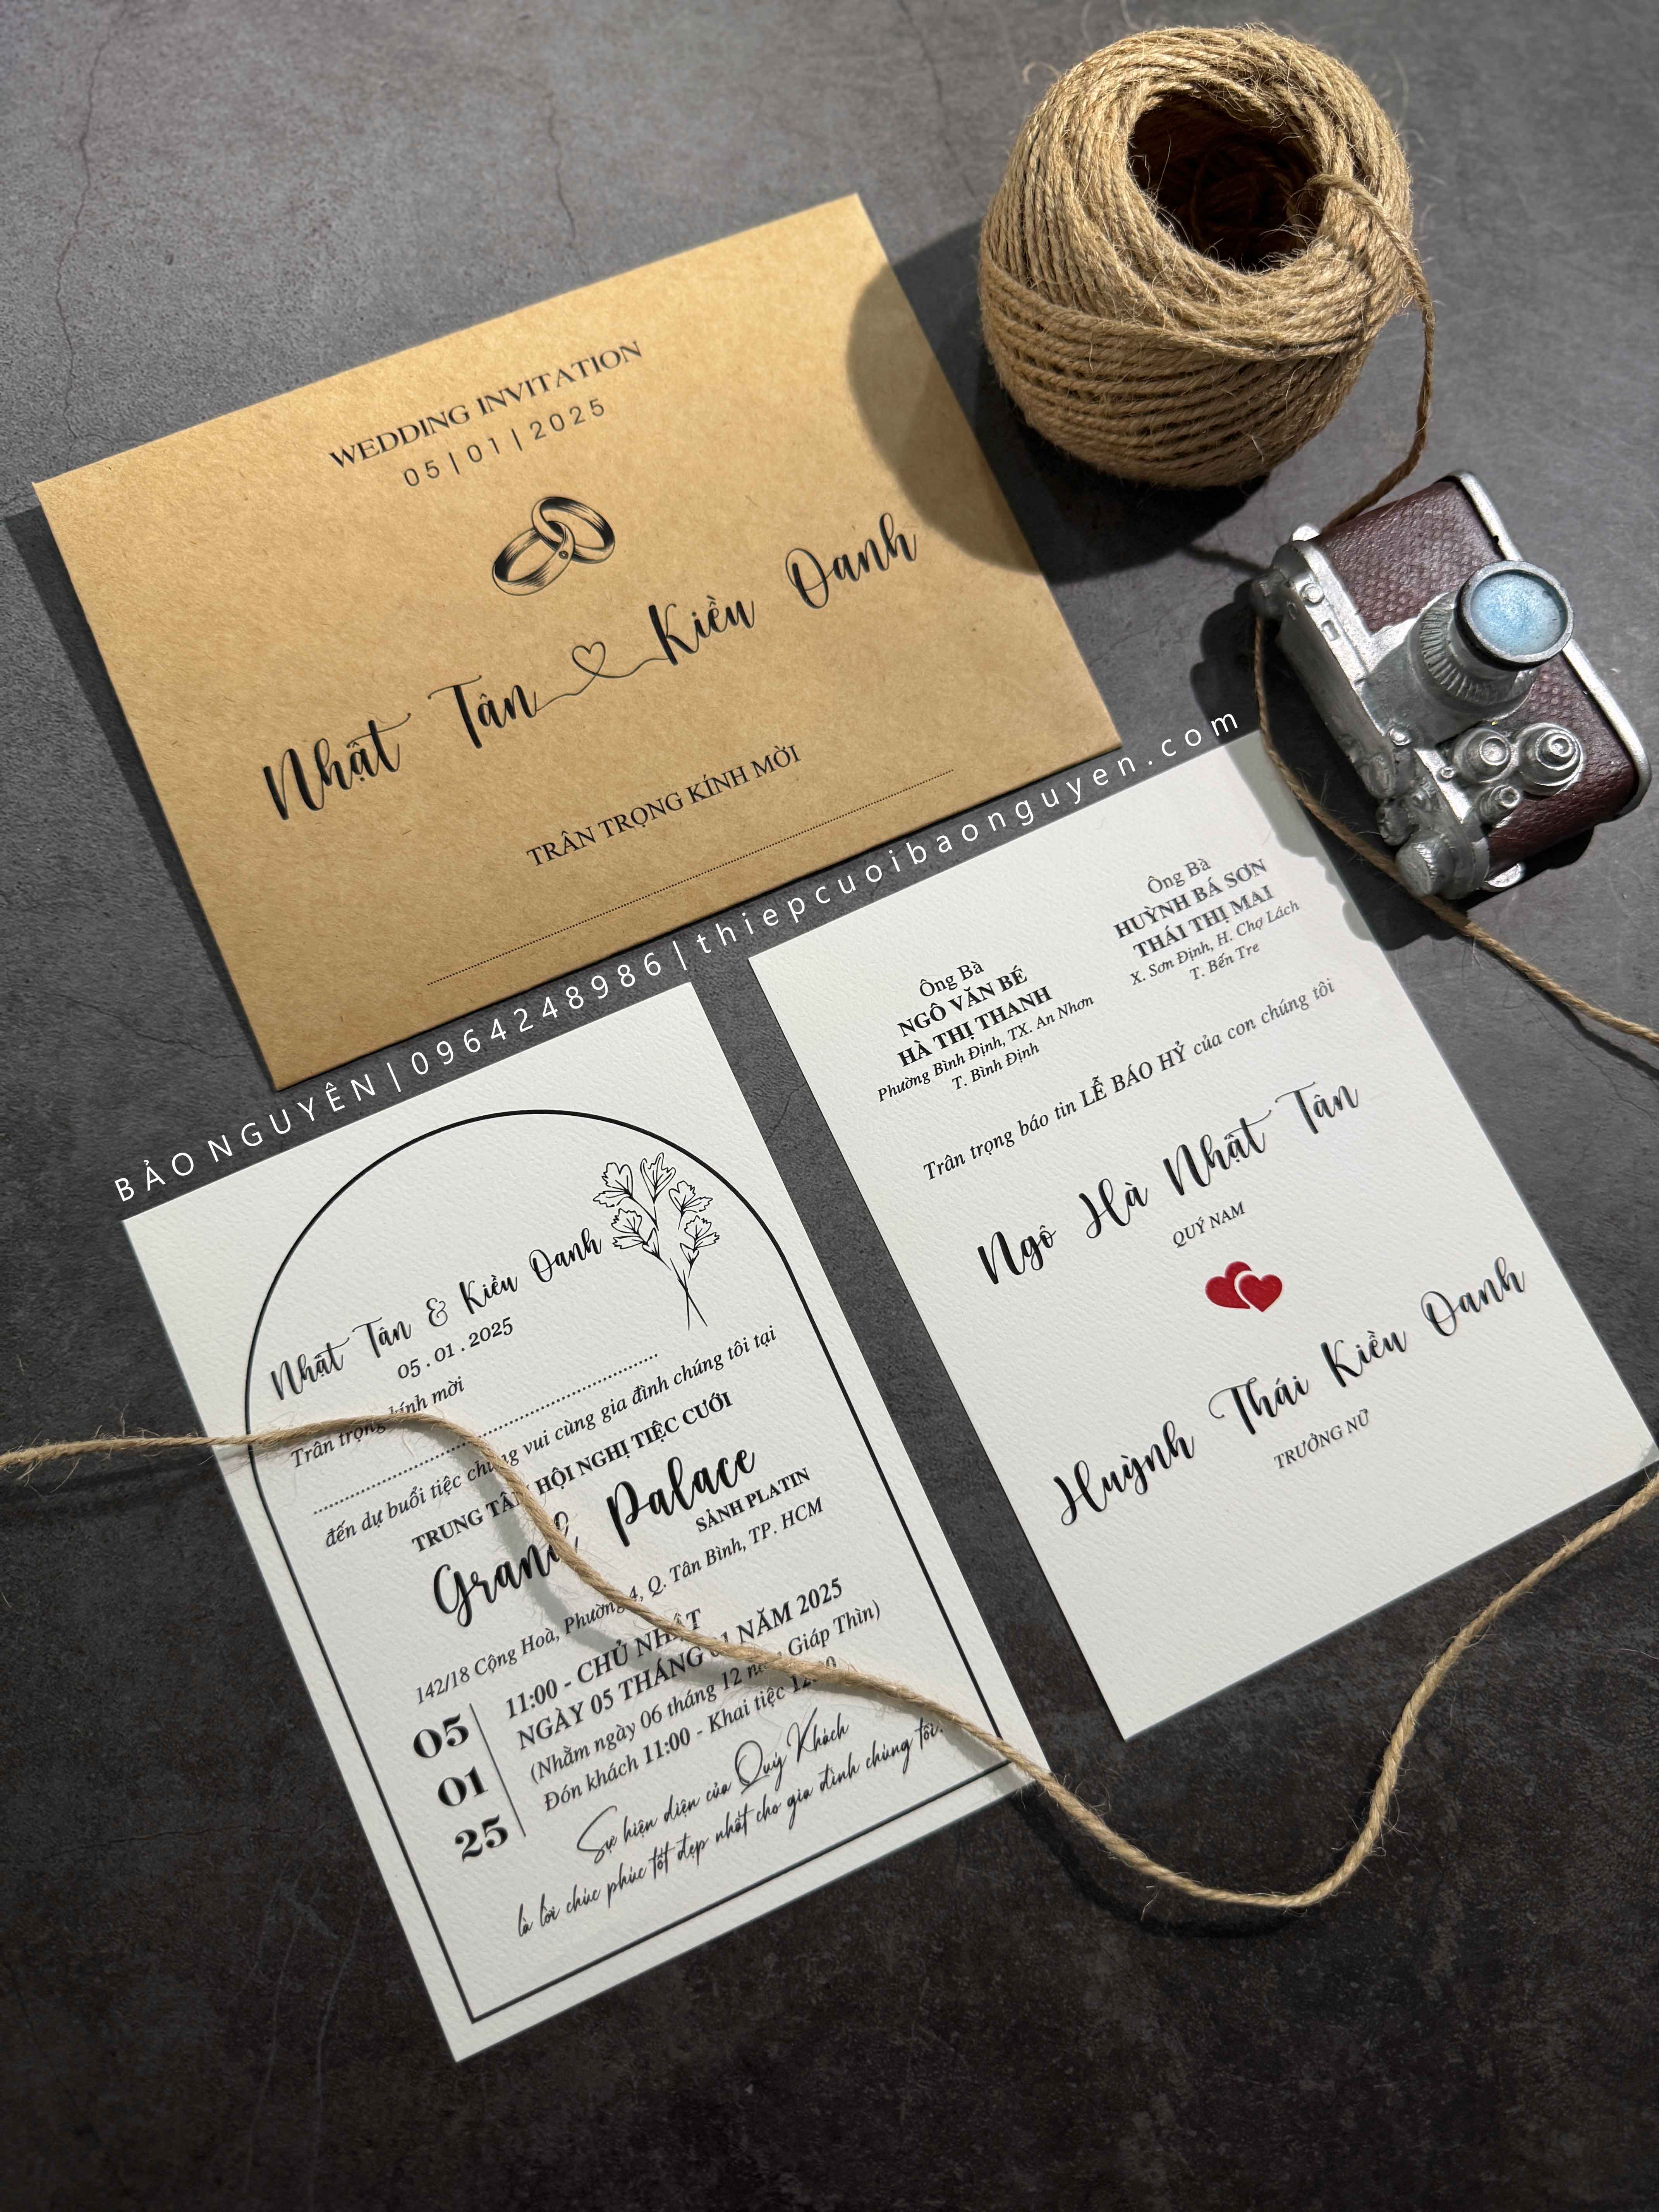 WEDDING INVITATION
05|01|2025
Nhật Tân Kiều Oanh
TRÂN TRỌNG KÍNH MỜI
BẢO NGUYÊN|0964248986|thiepcuoibaonguyen.com
Nhật Tân & Kiều Oanh
05.01.2025
Trân trọng kính mời
đến dự buổi tiệc chung vui cùng gia đình chúng tôi tại
TRUNG TÂM HỘI NGHỊ TIỆC CƯỚI
Grand Palace
SẢNH PLATIN
142/18 Cộng Hoà, Phường 4, Q. Tân Bình, TP. HCM
05
01
25
11:00 - CHỦ NHẬT
NGÀY 05 THÁNG 01 NĂM 2025
(Nhằm ngày 06 tháng 12 năm Giáp Thìn)
Đón khách 11:00 - Khai tiệc
Sự hiện diện của Quý Khách
là lời chúc phúc tốt đẹp nhất cho gia đình chúng tôi.
Ông Bà
NGÔ VĂN BÉ
HÀ THỊ THANH
Phường Bình Định, TX. An Nhơn
T. Bình Định
Ông Bà
HUỲNH BÁ SƠN
THÁI THỊ MAI
X. Sơn Định, H. Chợ Lách
T. Bến Tre
Trân trọng báo tin LỄ BÁO HỶ của con chúng tôi
Ngô Hà Nhật Tân
QUÝ NAM
Huỳnh Thái Kiều Oanh
TRƯỞNG NỮ